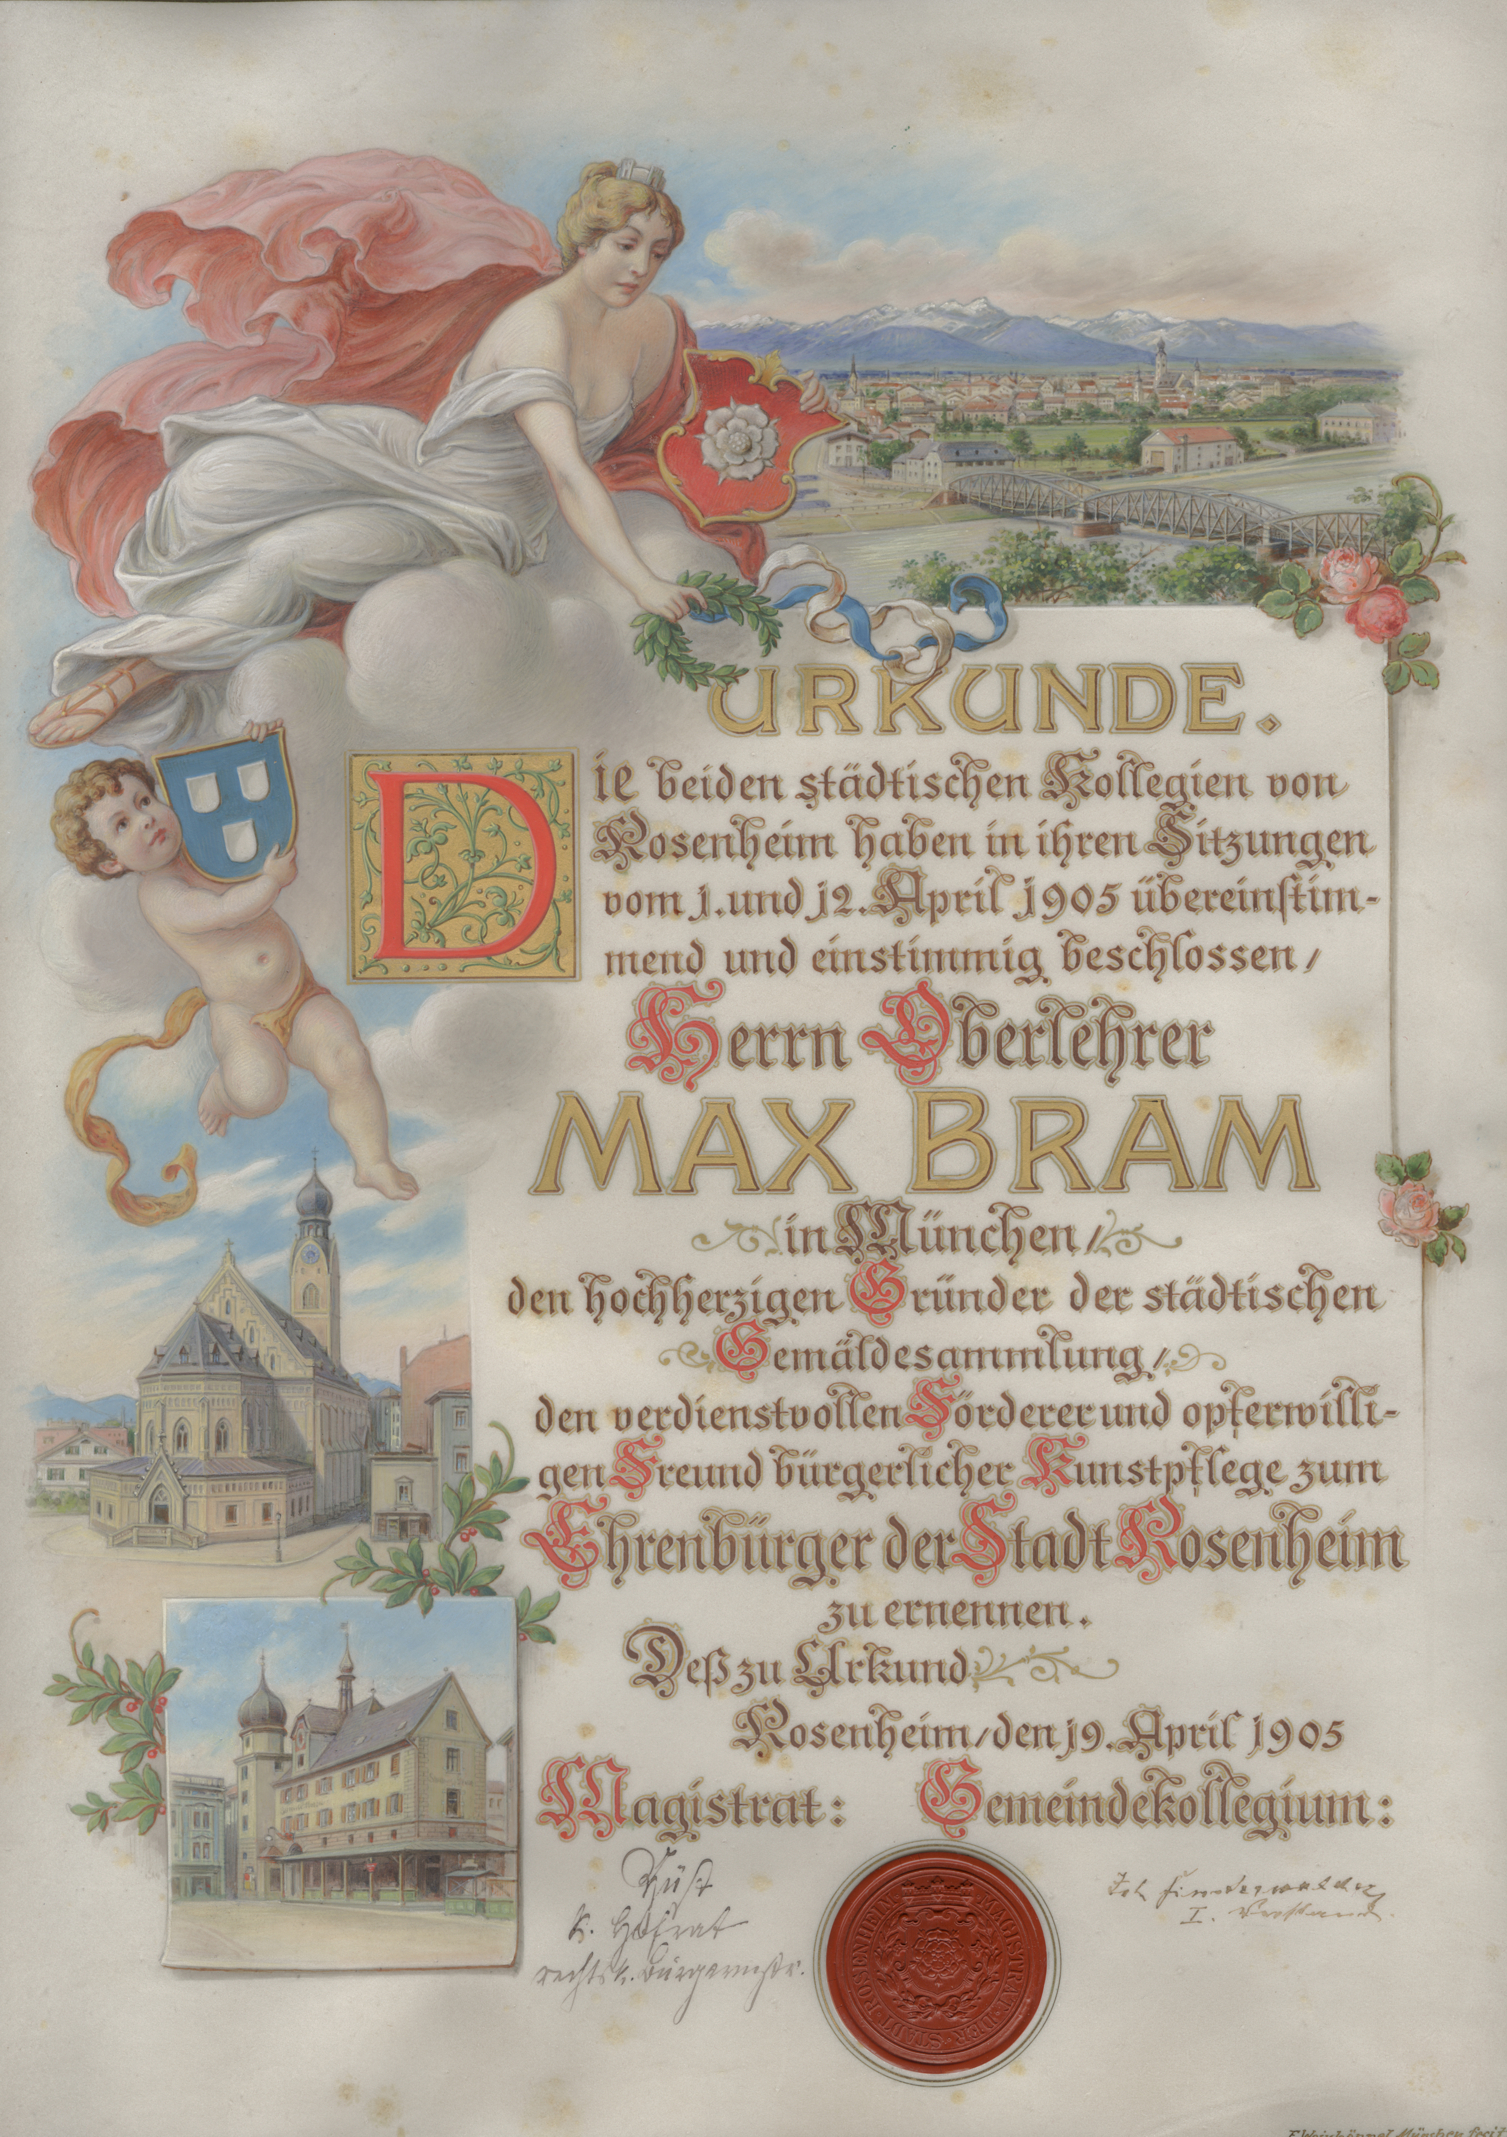 URKUNDE.
Die beiden städtischen Kollegien von
Rosenheim haben in ihren Sitzungen
vom 1. und 12. April 1905 übereinstim-
mend und einstimmig beschlossen /
Herrn Oberlehrer
MAX BRAM
in München /
den hochherzigen Gründer der städtischen
Gemäldesammlung /
den verdienstvollen Förderer und opferwilli-
gen Freund bürgerlicher Kunstpflege zum
Ehrenbürger der Stadt Rosenheim
zu ernennen.
Deß zu Urkund
Rosenheim / den 19. April 1905
Magistrat: Gemeindekollegium:
Wüst
k. Hofrat
rechtsk. Bürgermstr.
Joh Finsterwalder
I. Vorstand.
MAGISTRAT DER STADT ROSENHEIM
München fecit